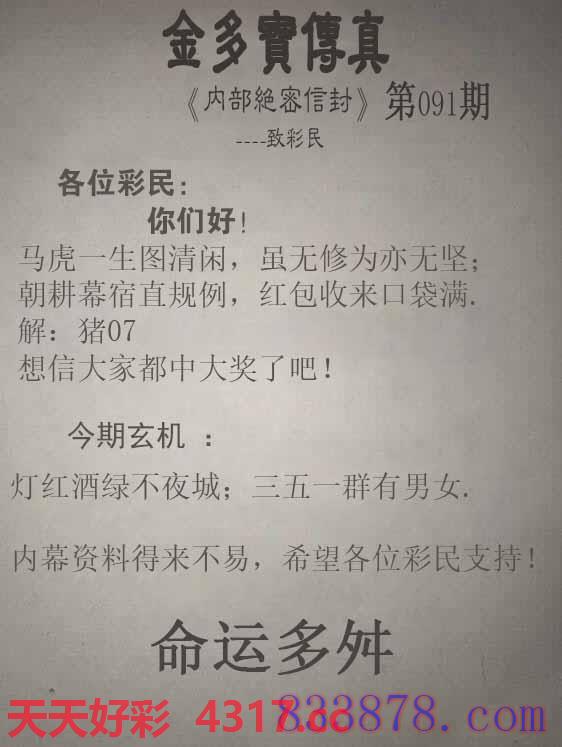 金多寶傳真
《内部絶密信封》第091期
----致彩民
各位彩民:
你们好!
马虎一生图清闲，虽无修为亦无坚;
朝耕幕宿直规例，红包收来口袋满.
解：猪07
想信大家都中大奖了吧!
今期玄机 ：
灯红酒绿不夜城；三五一群有男女.
内幕资料得来不易，希望各位彩民支持!
命运多舛
天天好彩 4317.cc
833878.com